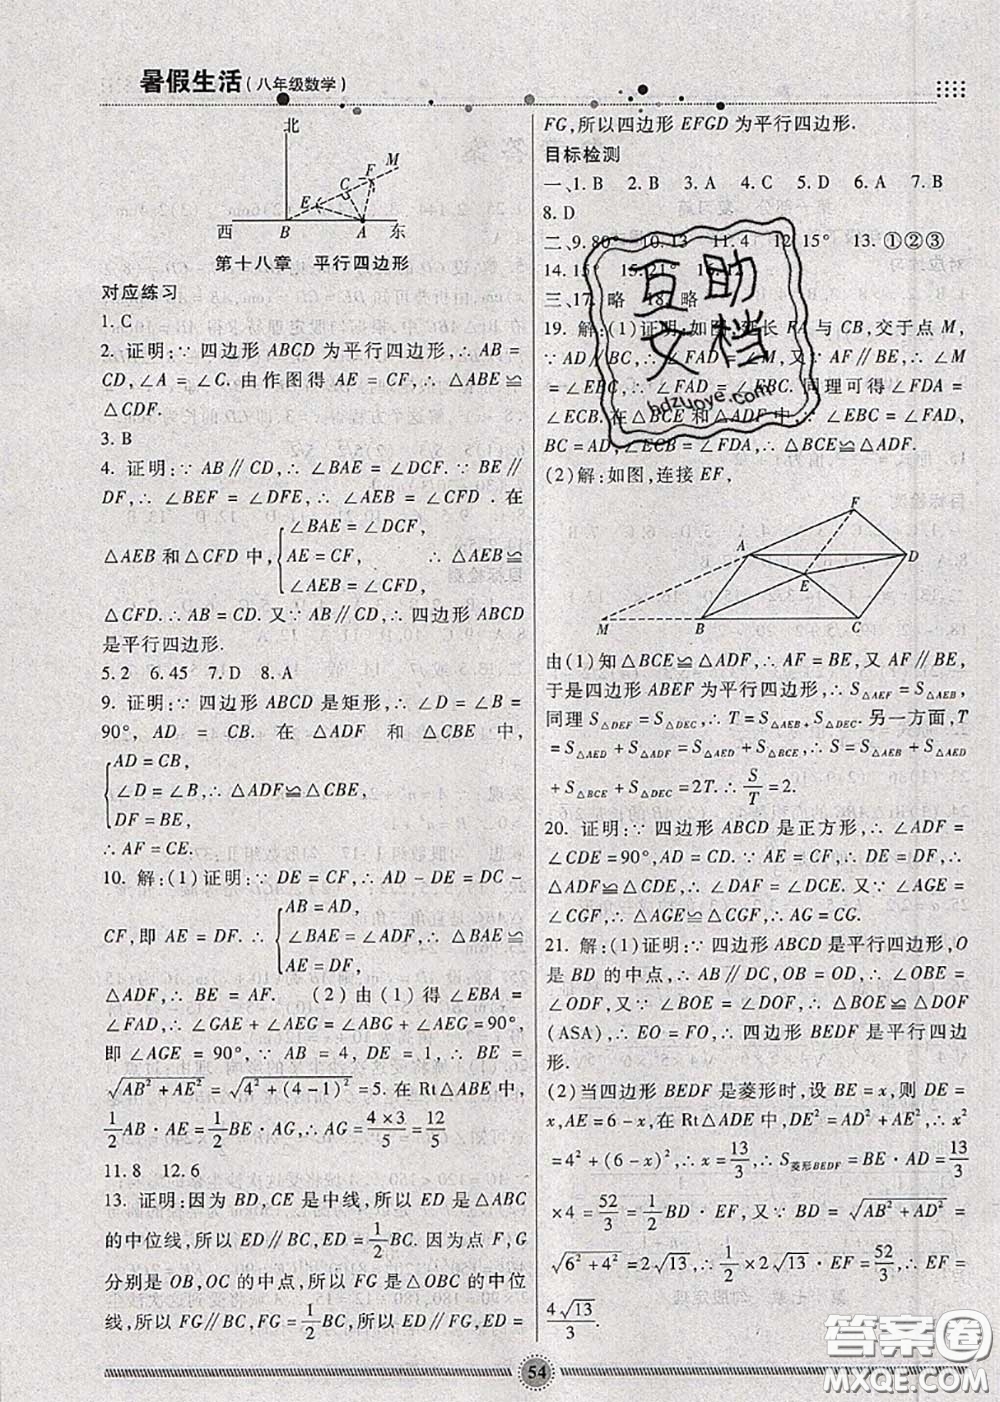 暑假生活(八年级数学)
北
M
F
C
E
西 B A 东
第十八章 平行四边形
对应练习
1. C
2. 证明:∵ 四边形 ABCD 为平行四边形,∴ AB =
CD,∠A = ∠C. 由作图得 AE = CF,∴ △ABE ≌
△CDF.
3. B
4. 证明:∵ AB∥CD,∴ ∠BAE = ∠DCF. ∵ BE∥
DF,∴ ∠BEF = ∠DFE,∴ ∠AEB = ∠CFD . 在
△AEB 和 △CFD 中, { ∠BAE = ∠DCF, AE = CF, ∠AEB = ∠CFD, ∴ △AEB ≌
△CFD. ∴ AB = CD. 又∵ AB∥CD,∴ 四边形 ABCD
是平行四边形.
5. 2 6. 45 7. D 8. A
9. 证明:∵ 四边形 ABCD 是矩形,∴ ∠D = ∠B =
90°, AD = CB. 在 △ADF 和 △CBE 中,
{ AD = CB, ∠D = ∠B, DF = BE, ∴ △ADF≌△CBE,
∴ AF = CE.
10. 解:(1)证明:∵ DE = CF,∴ AD - DE = DC -
CF,即 AE = DF. ∴ { AB = AD, ∠BAE = ∠ADF, AE = DF, ∴ △BAE ≌
△ADF,∴ BE = AF. (2) 由 (1) 得 ∠EBA =
∠FAD,∴ ∠GAE + ∠AEG = ∠ABG + ∠AEG = 90°,
即 ∠AGE = 90°, ∵ AB = 4, DE = 1, ∴ BE =
√(AB² + AE²) = √(4² + (4 - 1)²) = 5. 在 Rt△ABE 中,
1/2 AB · AE = 1/2 BE · AG,∴ AG = (4 × 3)/5 = 12/5
11. 8 12. 6
13. 证明:因为 BD,CE 是中线,所以 ED 是△ABC
的中位线,所以 ED∥BC,ED = 1/2 BC. 因为点 F,G
分别是 OB,OC 的中点,所以 FG 是△OBC 的中位
线,所以 FG∥BC,FG = 1/2 BC,所以 ED∥FG,ED =
FG,所以四边形 EFGD 为平行四边形.
目标检测
一、1. B 2. B 3. A 4. C 5. D 6. A 7. B
8. D
二、9. 80° 10. 13 11. 4 12. 15° 13. ①②③
14. 15° 15. 21° 16. 12
三、17. 略 18. 略
19. 解:(1)证明:如图,延长 FA 与 CB,交于点 M,
∵ AD∥BC,∴ ∠FAD = ∠M,又∵ AF∥BE,∴ ∠M
= ∠EBC,∴ ∠FAD = ∠EBC. 同理可得 ∠FDA =
∠ECB. 在△BCE 和△ADF 中,∵ ∠EBC = ∠FAD,
BC = AD,∠ECB = ∠FDA,∴ △BCE≌△ADF.
(2)解:如图,连接 EF,
F
A D
E
M B C
由(1)知△BCE≌△ADF,∴ AF = BE,又 AF∥BE,
于是四边形 ABEF 为平行四边形,∴ S△AEF = S△AEB,
同理 S△DEF = S△DEC,∴ T = S△AEB + S△DEC. 另一方面,T
= S△AED + S△ADF = S△AED + S△BCE,∴ S = S△AEB + S△AED
+ S△BCE + S△DEC = 2T. ∴ S/T = 2.
20. 证明:∵ 四边形 ABCD 是正方形,∴ ∠ADF =
∠CDE = 90°,AD = CD. ∵ AE = CF,∴ DE = DF,∴
△ADF≌△CDE,∴ ∠DAF = ∠DCE. 又∵ ∠AGE =
∠CGF,∴ △AGE≌△CGF,∴ AG = CG.
21. 解:(1)证明:∵ 四边形 ABCD 是平行四边形,O
是 BD 的中点,∴ AB∥DC,OB = OD,∴ ∠OBE =
∠ODF,又∵ ∠BOE = ∠DOF,∴ △BOE≌△DOF
(ASA),∴ EO = FO,∴ 四边形 BEDF 是平行四边
形.
(2)当四边形 BEDF 是菱形时,设 BE = x,则 DE =
x,AE = 6 - x,在 Rt△ADE 中,DE² = AD² + AE²,∴ x²
= 4² + (6 - x)²,∴ x = 13/3,∴ S菱形BEDF = BE · AD = 13/3
× 4 = 52/3 = 1/2 BD · EF,又∵ BD = √(AB² + AD²) =
√(6² + 4²) = 2√13,∴ 1/2 BD · EF = 52/3,∴ EF =
4√13/3.
互助
文档
bdzuoye.com
答案圈
MXQE.COM
54